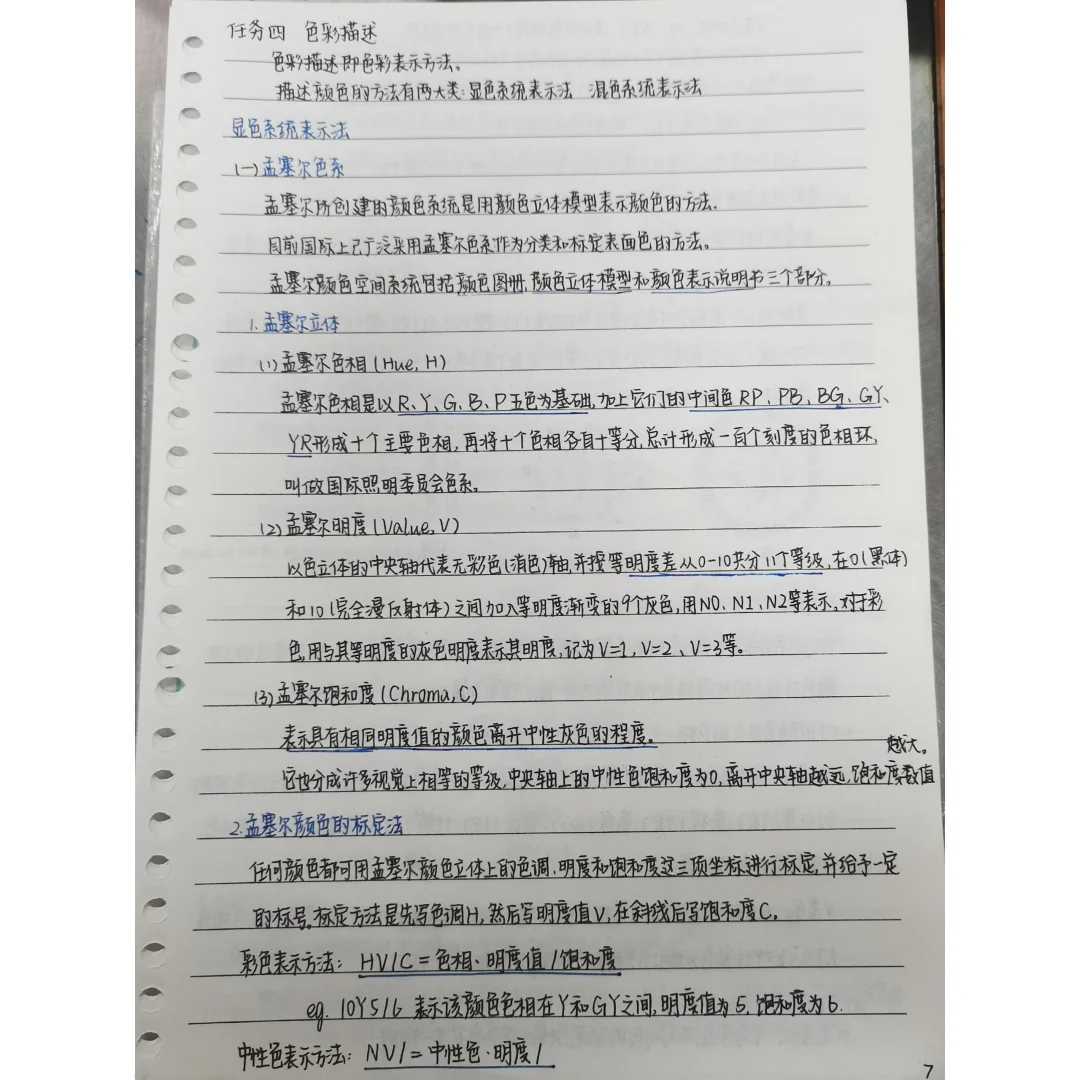 任务四 色彩描述
色彩描述即色彩表示方法。
描述颜色的方法有两大类:显色系统表示法 混色系统表示法
显色系统表示法
(一)孟塞尔色系
孟塞尔所创建的颜色系统是用颜色立体模型表示颜色的方法.
目前国际上已广泛采用孟塞尔色系作为分类和标定表面色的方法。
孟塞尔颜色空间系统包括颜色图册、颜色立体模型和颜色表示说明书三个部分。
1.孟塞尔立体
(1)孟塞尔色相(Hue,H)
孟塞尔色相是以R、Y、G、B、P五色为基础,加上它们的中间色RP、PB、BG、GY、
YR形成十个主要色相,再将十个色相各自十等分,总计形成一百个刻度的色相环,
叫做国际照明委员会色系。
(2)孟塞尔明度(Value,V)
以色立体的中央轴代表无彩色(消色)轴,并按等明度差从0-10共分11个等级,在0(黑体)
和10(完全漫反射体)之间加入等明度渐变的9个灰色,用N0、N1、N2等表示,对于彩
色,用与其等明度的灰色明度表示其明度,记为V=1,V=2、V=3等。
(3)孟塞尔饱和度(Chroma,C)
表示具有相同明度值的颜色离开中性灰色的程度。
它也分成许多视觉上相等的等级,中央轴上的中性色饱和度为0,离开中央轴越远,饱和度数值
越大。
2.孟塞尔颜色的标定法
任何颜色都可用孟塞尔颜色立体上的色调、明度和饱和度这三项坐标进行标定,并给予一定
的标号。标定方法是先写色调H,然后写明度值V,在斜线后写饱和度C。
彩色表示方法: HV/C=色相、明度值/饱和度
eg. 10Y5/6 表示该颜色色相在Y和GY之间,明度值为5,饱和度为6.
中性色表示方法: NV/=中性色·明度/
7